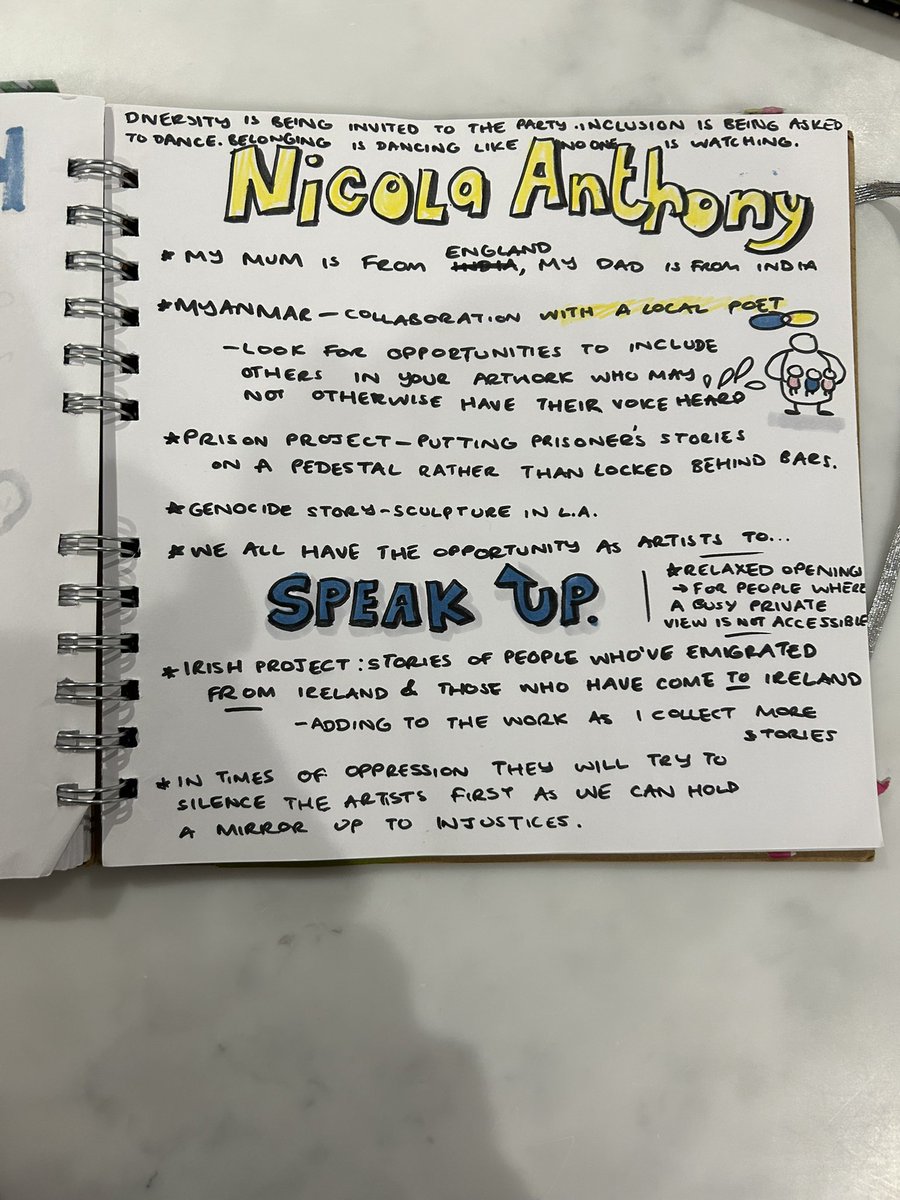 DIVERSITY IS BEING INVITED TO THE PARTY. INCLUSION IS BEING ASKED
TO DANCE. BELONGING IS DANCING LIKE NO ONE IS WATCHING.
Nicola Anthony
* MY MUM IS FROM ENGLAND
INDIA, MY DAD IS FROM INDIA
* MYANMAR - COLLABORATION WITH A LOCAL POET
- LOOK FOR OPPORTUNITIES TO INCLUDE
OTHERS IN YOUR ARTWORK WHO MAY
NOT OTHERWISE HAVE THEIR VOICE HEARD
* PRISON PROJECT - PUTTING PRISONER'S STORIES
ON A PEDESTAL RATHER THAN LOCKED BEHIND BARS.
* GENOCIDE STORY - SCULPTURE IN L.A.
* WE ALL HAVE THE OPPORTUNITY AS ARTISTS TO...
SPEAK UP.
* RELAXED OPENING
→ FOR PEOPLE WHERE
A BUSY PRIVATE
VIEW IS NOT ACCESSIBLE
* IRISH PROJECT: STORIES OF PEOPLE WHO'VE EMIGRATED
FROM IRELAND & THOSE WHO HAVE COME TO IRELAND
- ADDING TO THE WORK AS I COLLECT MORE
STORIES
* IN TIMES OF OPPRESSION THEY WILL TRY TO
SILENCE THE ARTISTS FIRST AS WE CAN HOLD
A MIRROR UP TO INJUSTICES.